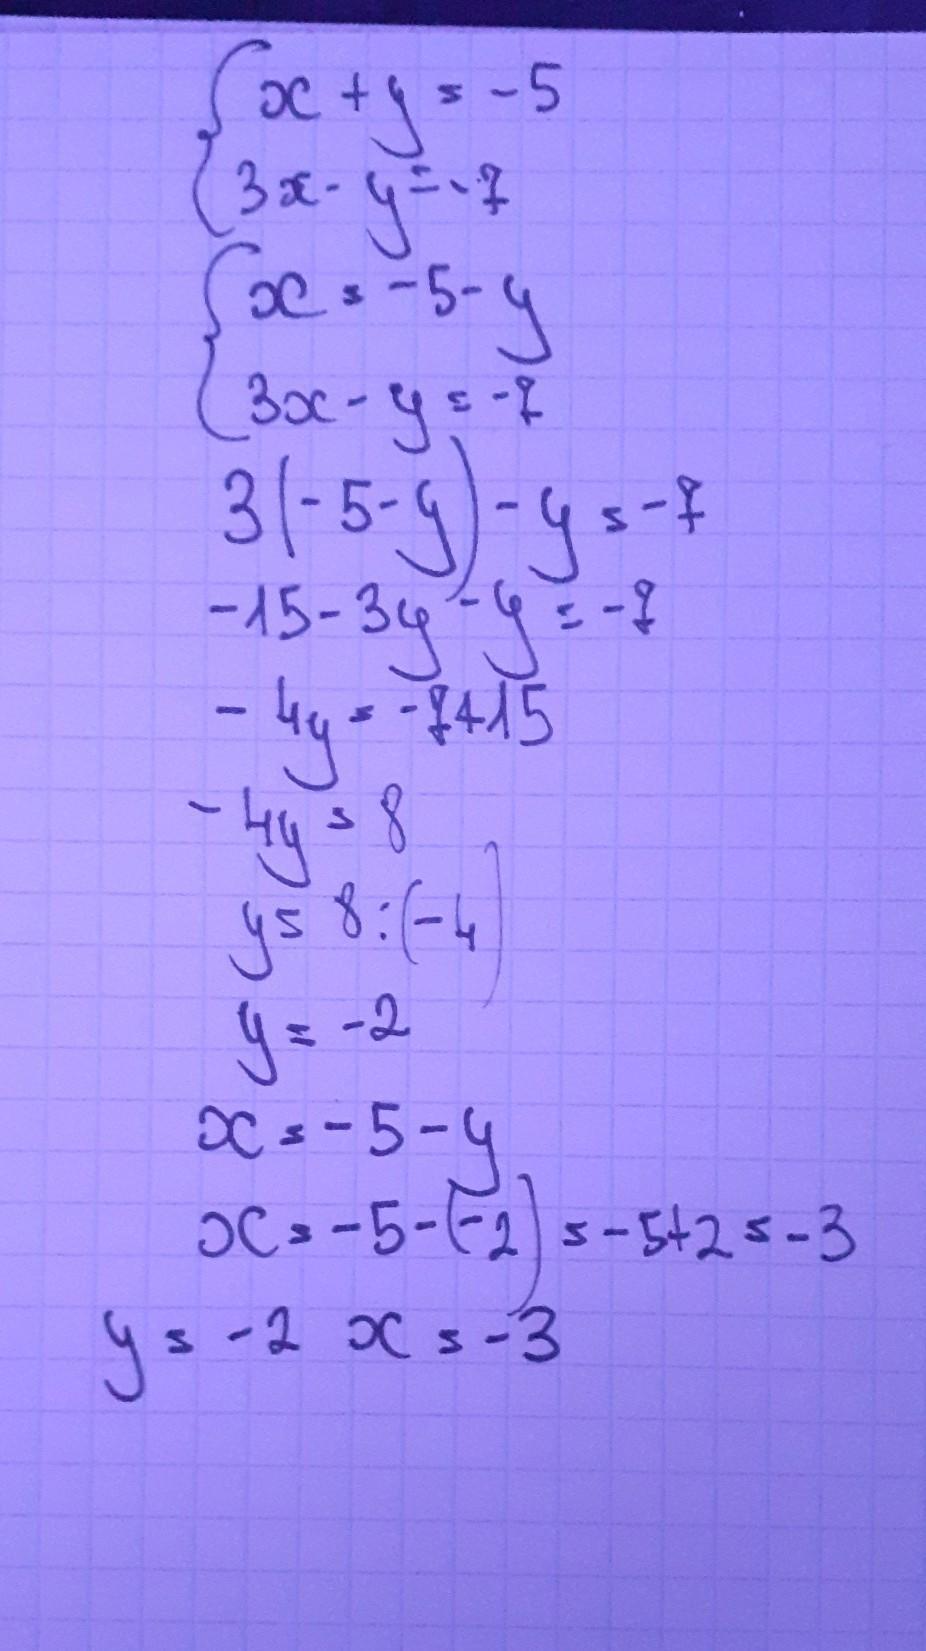 { x + y = -5
3x - y = -7
{ x = -5 - y
3x - y = -7
3(-5-y) - y = -7
-15 - 3y - y = -7
-4y = -7+15
-4y = 8
y = 8:(-4)
y = -2
x = -5 - y
x = -5-(-2) = -5+2 = -3
y = -2 x = -3